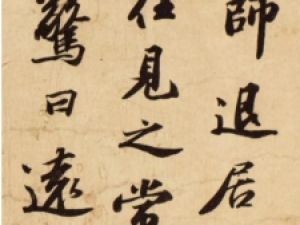 師退居
往見之嘗
驚曰遠